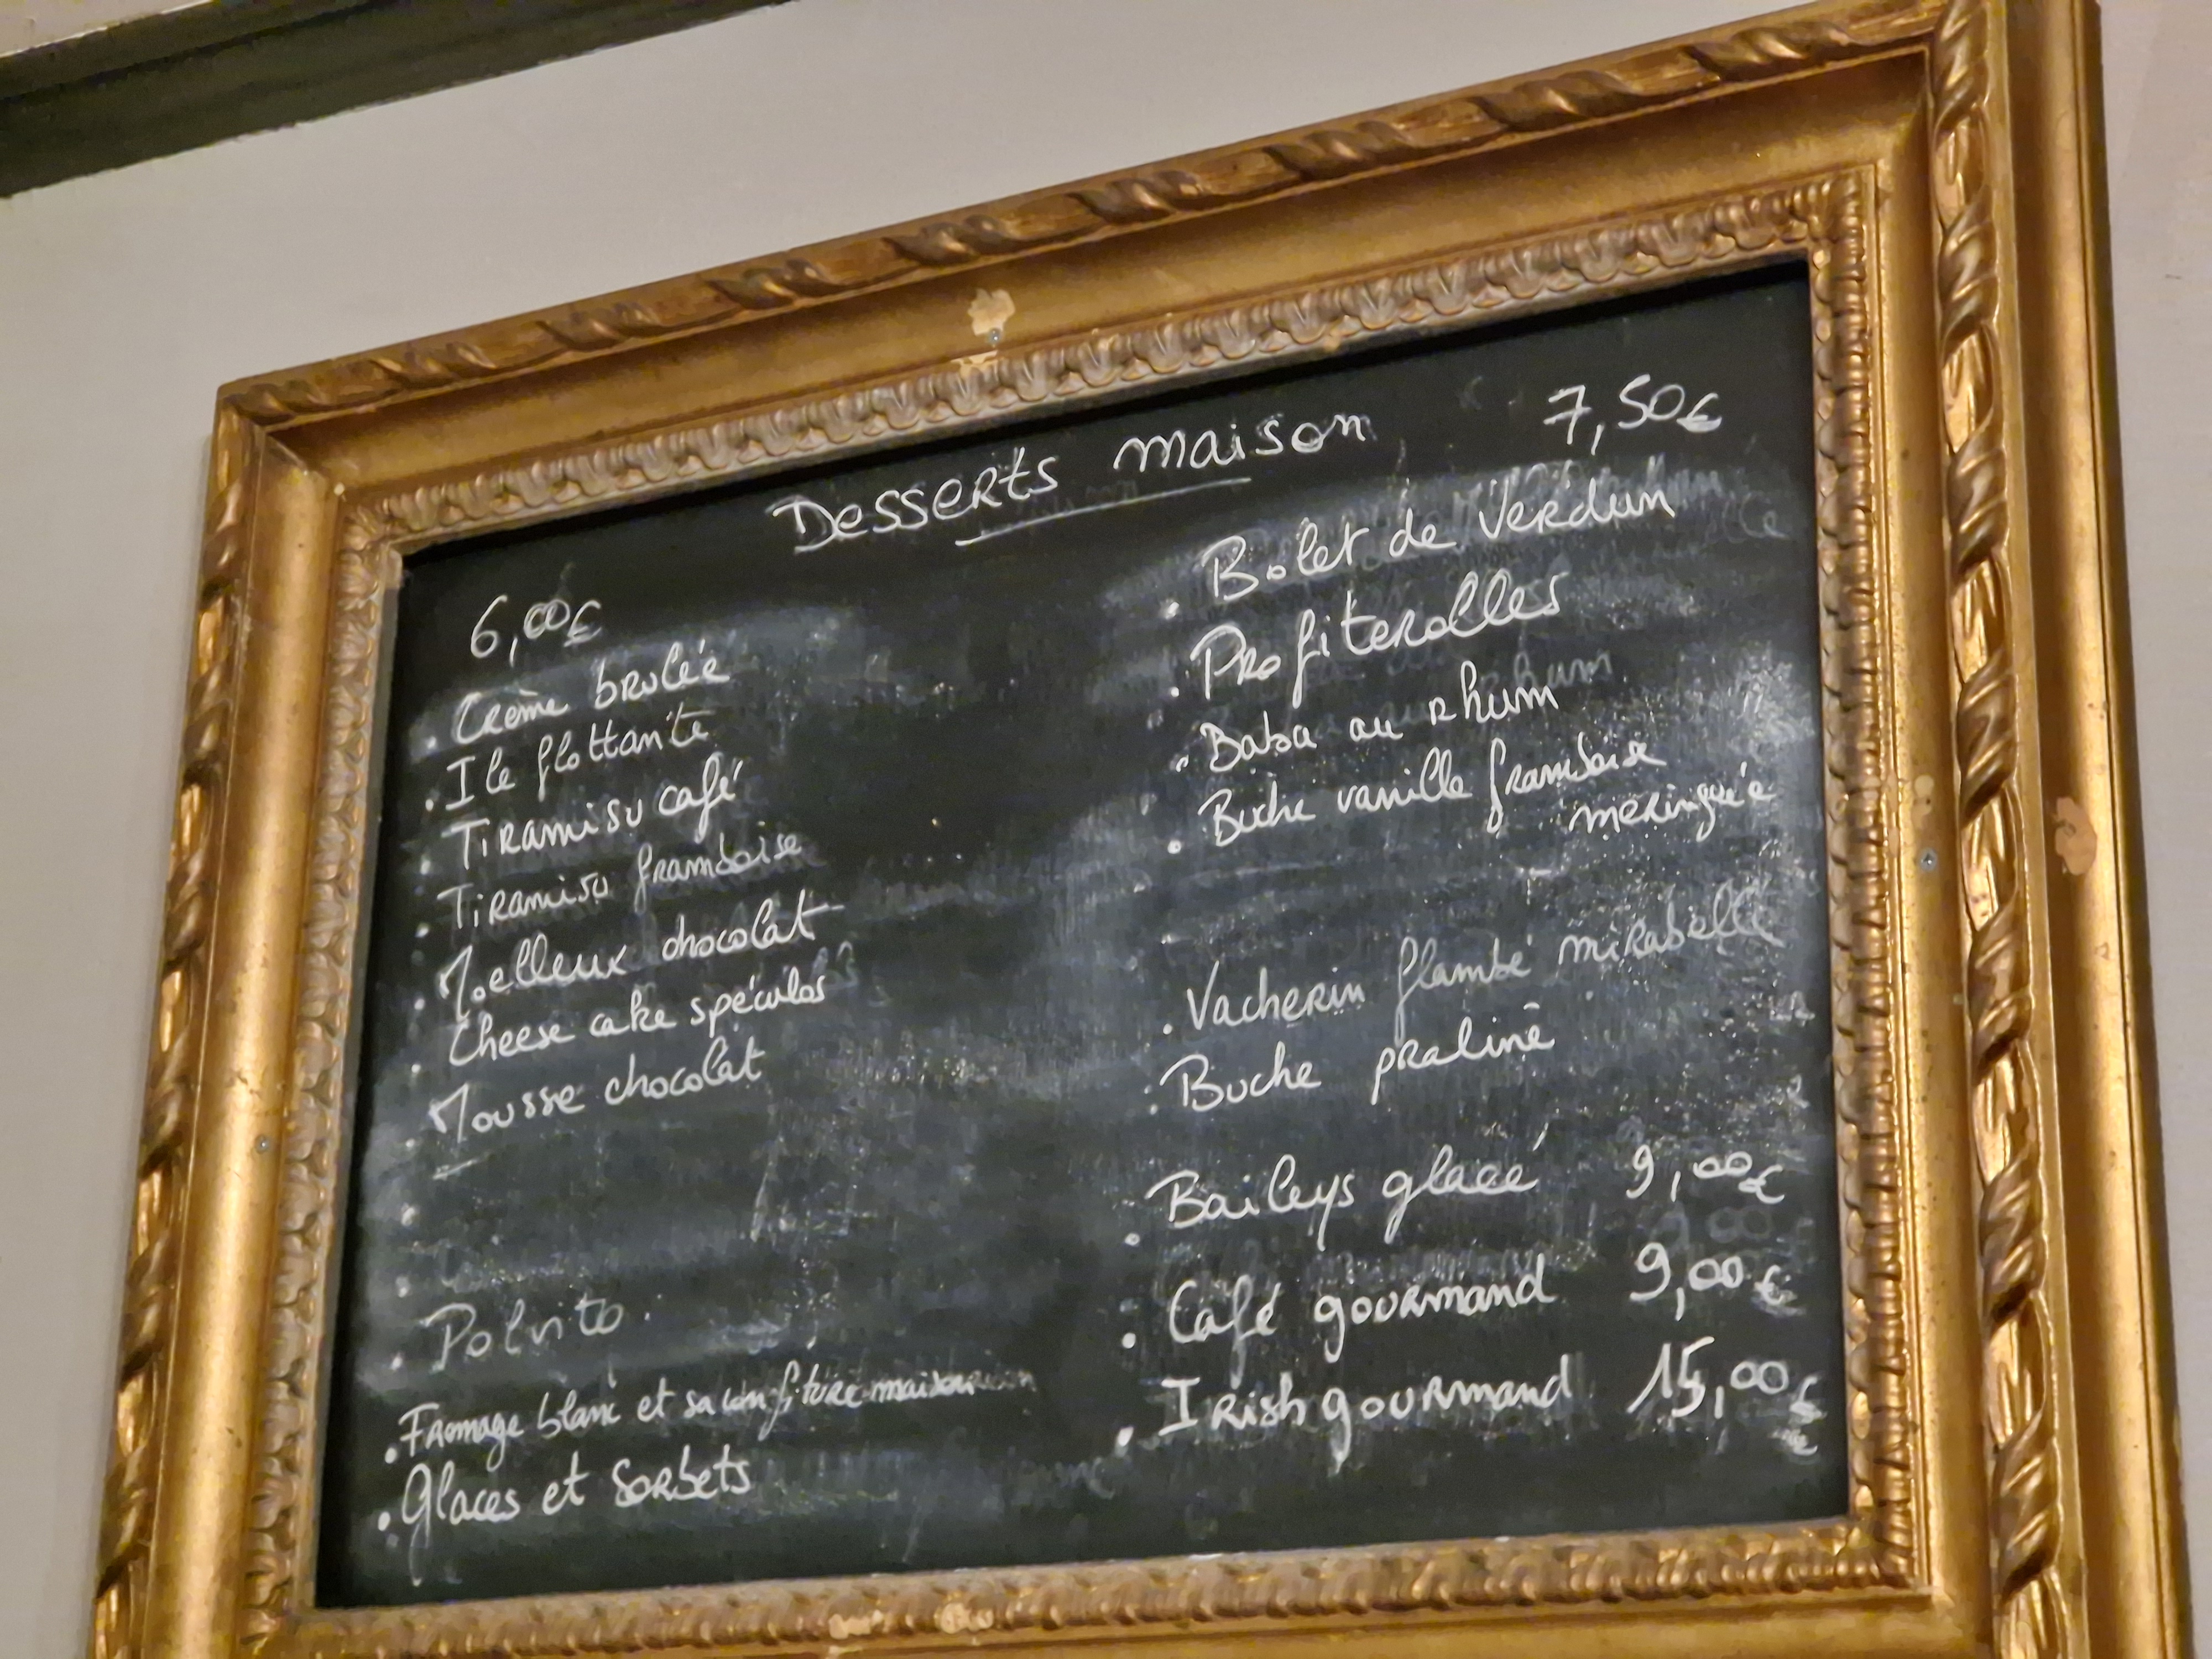 Desserts maison
6,00€
. Crème brulée
. Ile flottante
. Tiramisu café
. Tiramisu framboise
. Moelleux chocolat
. Cheese cake spéculos
. Mousse chocolat
. Polvito
. Fromage blanc et sa confiture maison
. Glaces et Sorbets
7,50€
. Bolet de Verdun
. Profiterolles
. Baba au rhum
. Buche vanille framboise
meringuée
. Vacherin flambé mirabelle
. Buche praliné
. Baileys glacé 9,00€
. Café gourmand 9,00€
. Irish gourmand 15,00€